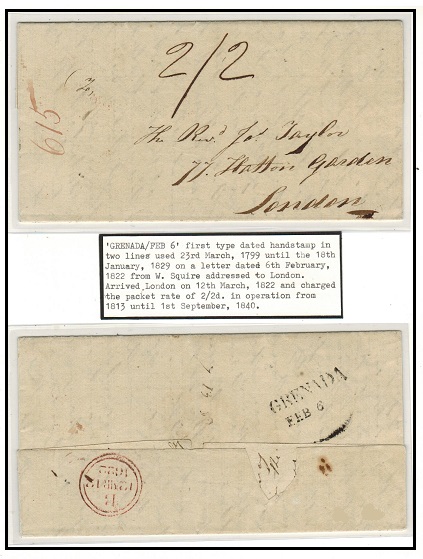 2/2
615
The Revd Jos. Taylor
77. Hatton Garden
London
'GRENADA/FEB 6' first type dated handstamp in
two lines used 23rd March, 1799 until the 18th
January, 1829 on a letter dated 6th February,
1822 from W. Squire addressed to London.
Arrived London on 12th March, 1822 and charged
the packet rate of 2/2d. in operation from
1813 until 1st September, 1840.
GRENADA
FEB 6
12MR12
1822